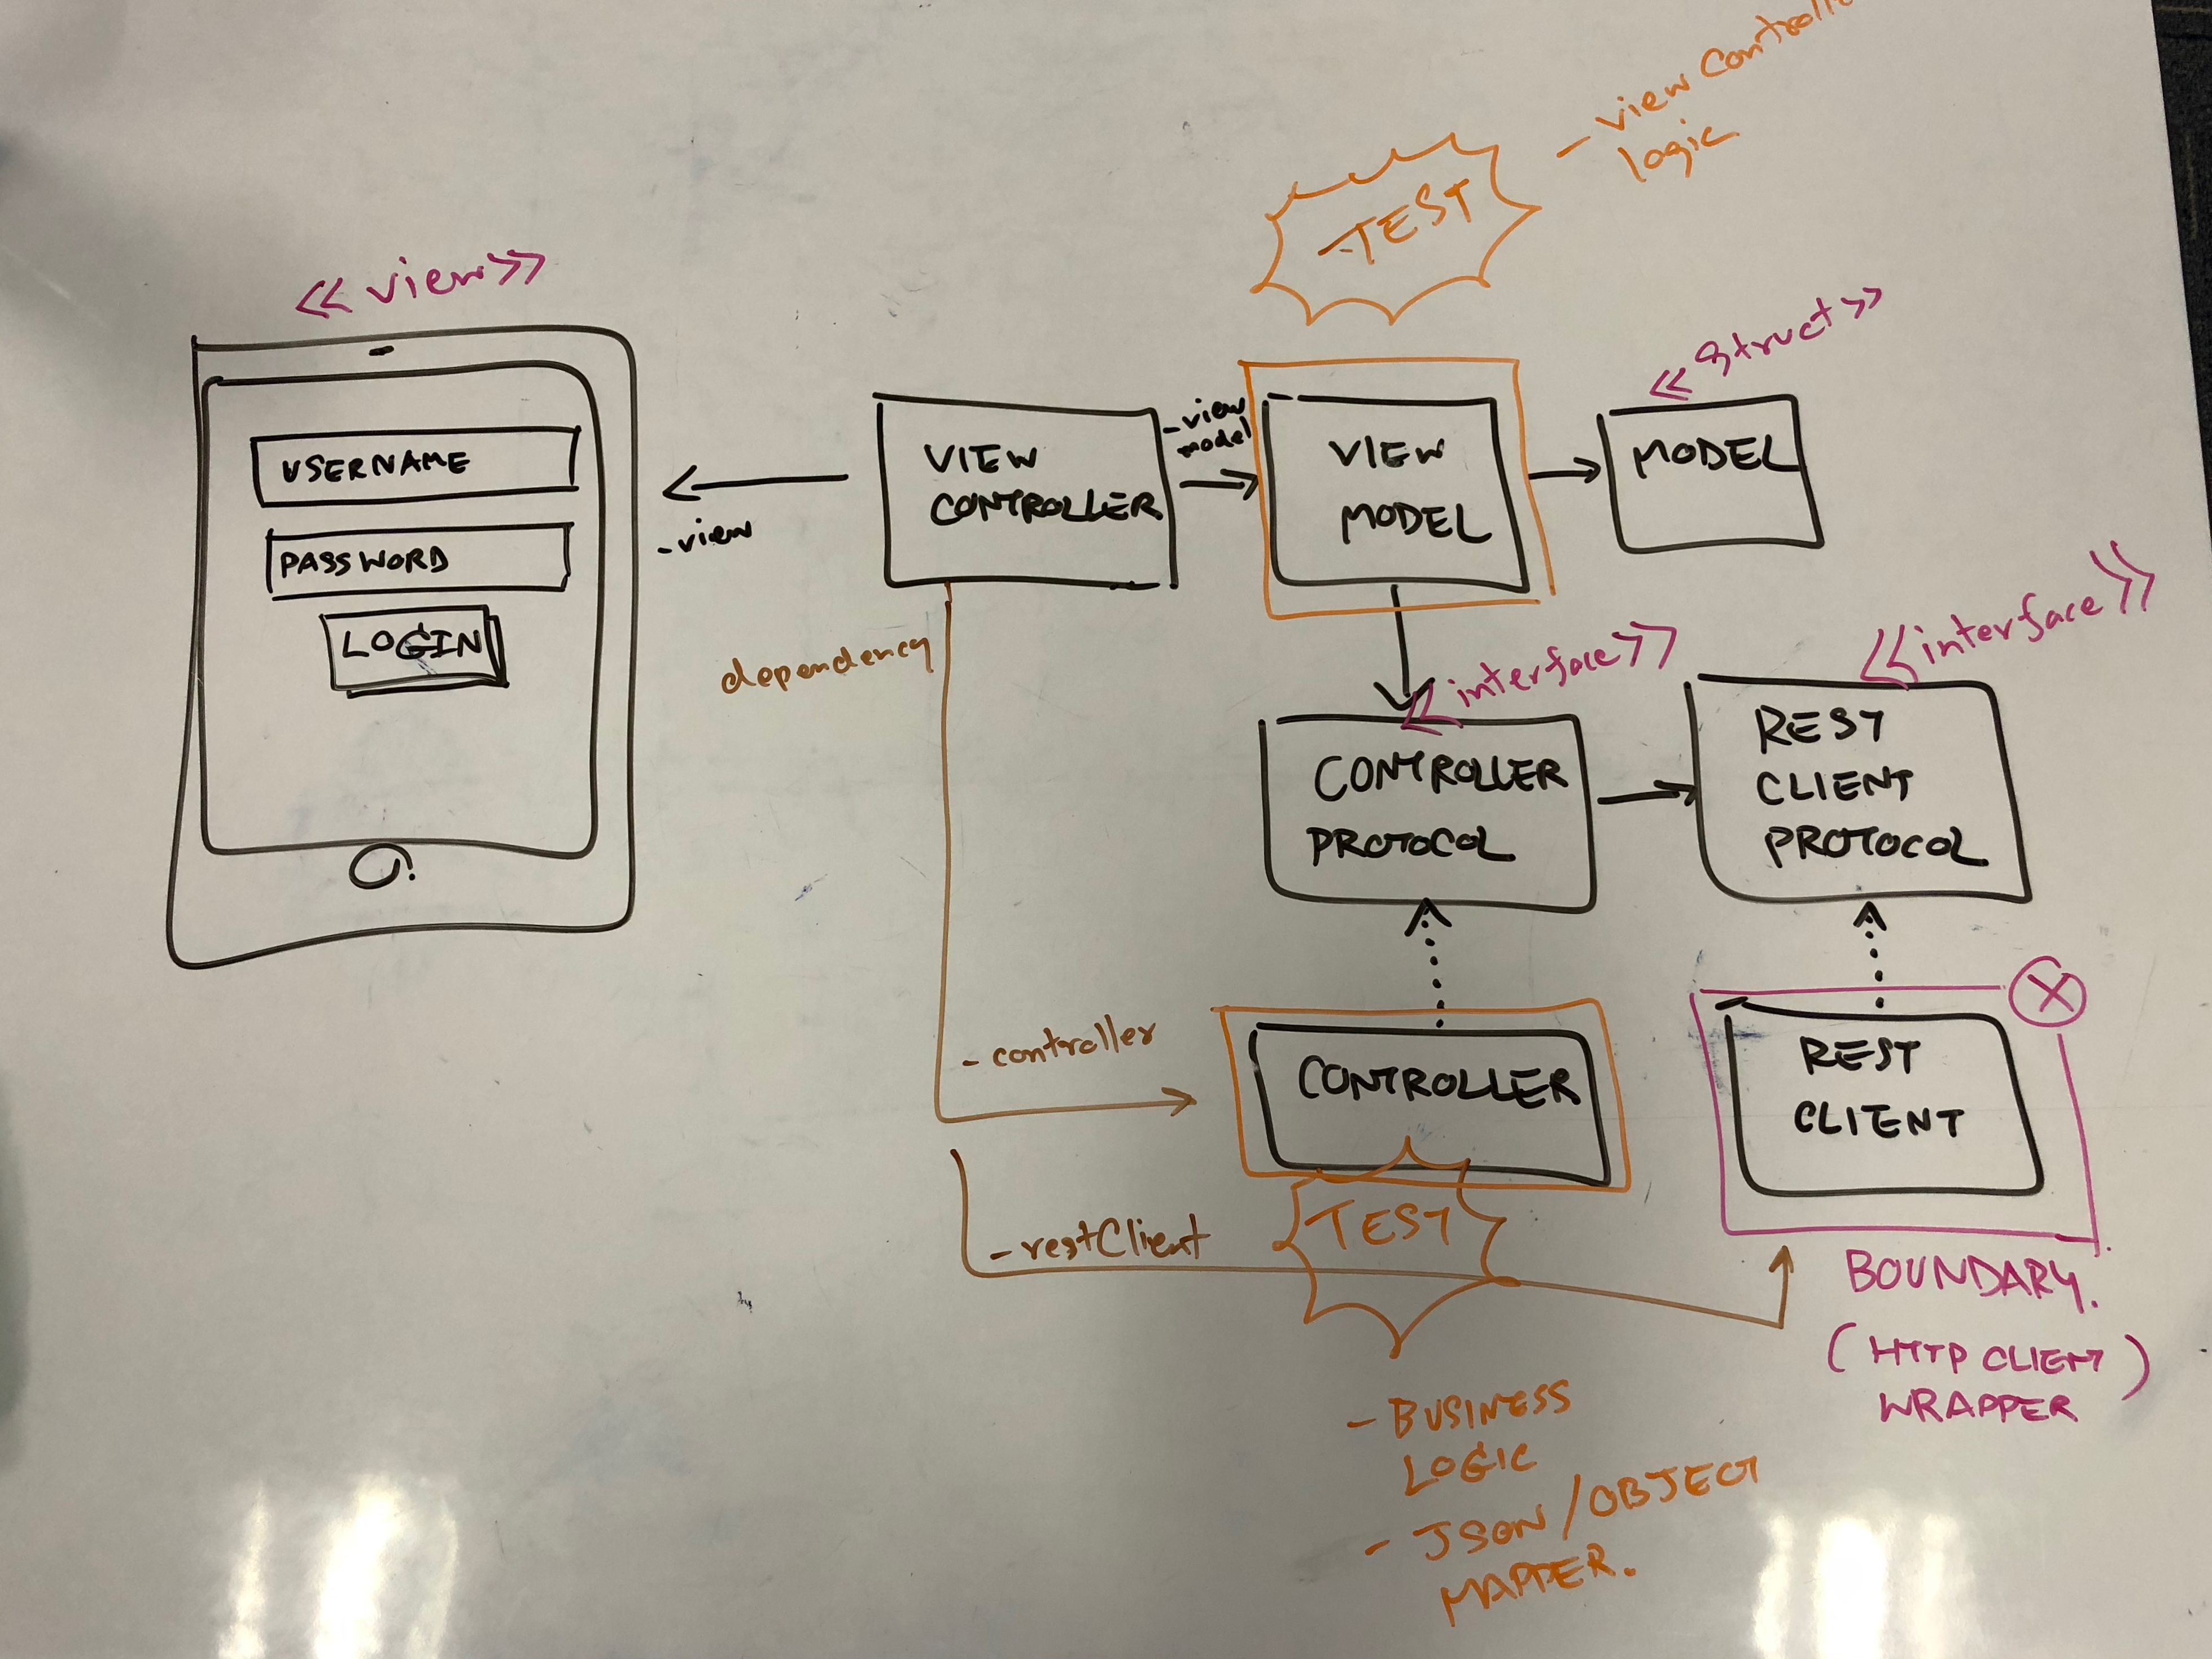 - view Controller
logic
TEST
<< view >>
<< struct >>
USERNAME
PASSWORD
LOGIN
- view
VIEW
CONTROLLER
- view
model
VIEW
MODEL
MODEL
dependency
<< interface >>
<< interface >>
CONTROLLER
PROTOCOL
REST
CLIENT
PROTOCOL
- controller
CONTROLLER
REST
CLIENT
X
- restClient
TEST
BOUNDARY.
( HTTP CLIENT )
WRAPPER
- BUSINESS
LOGIC
- JSON/OBJECT
MAPPER.